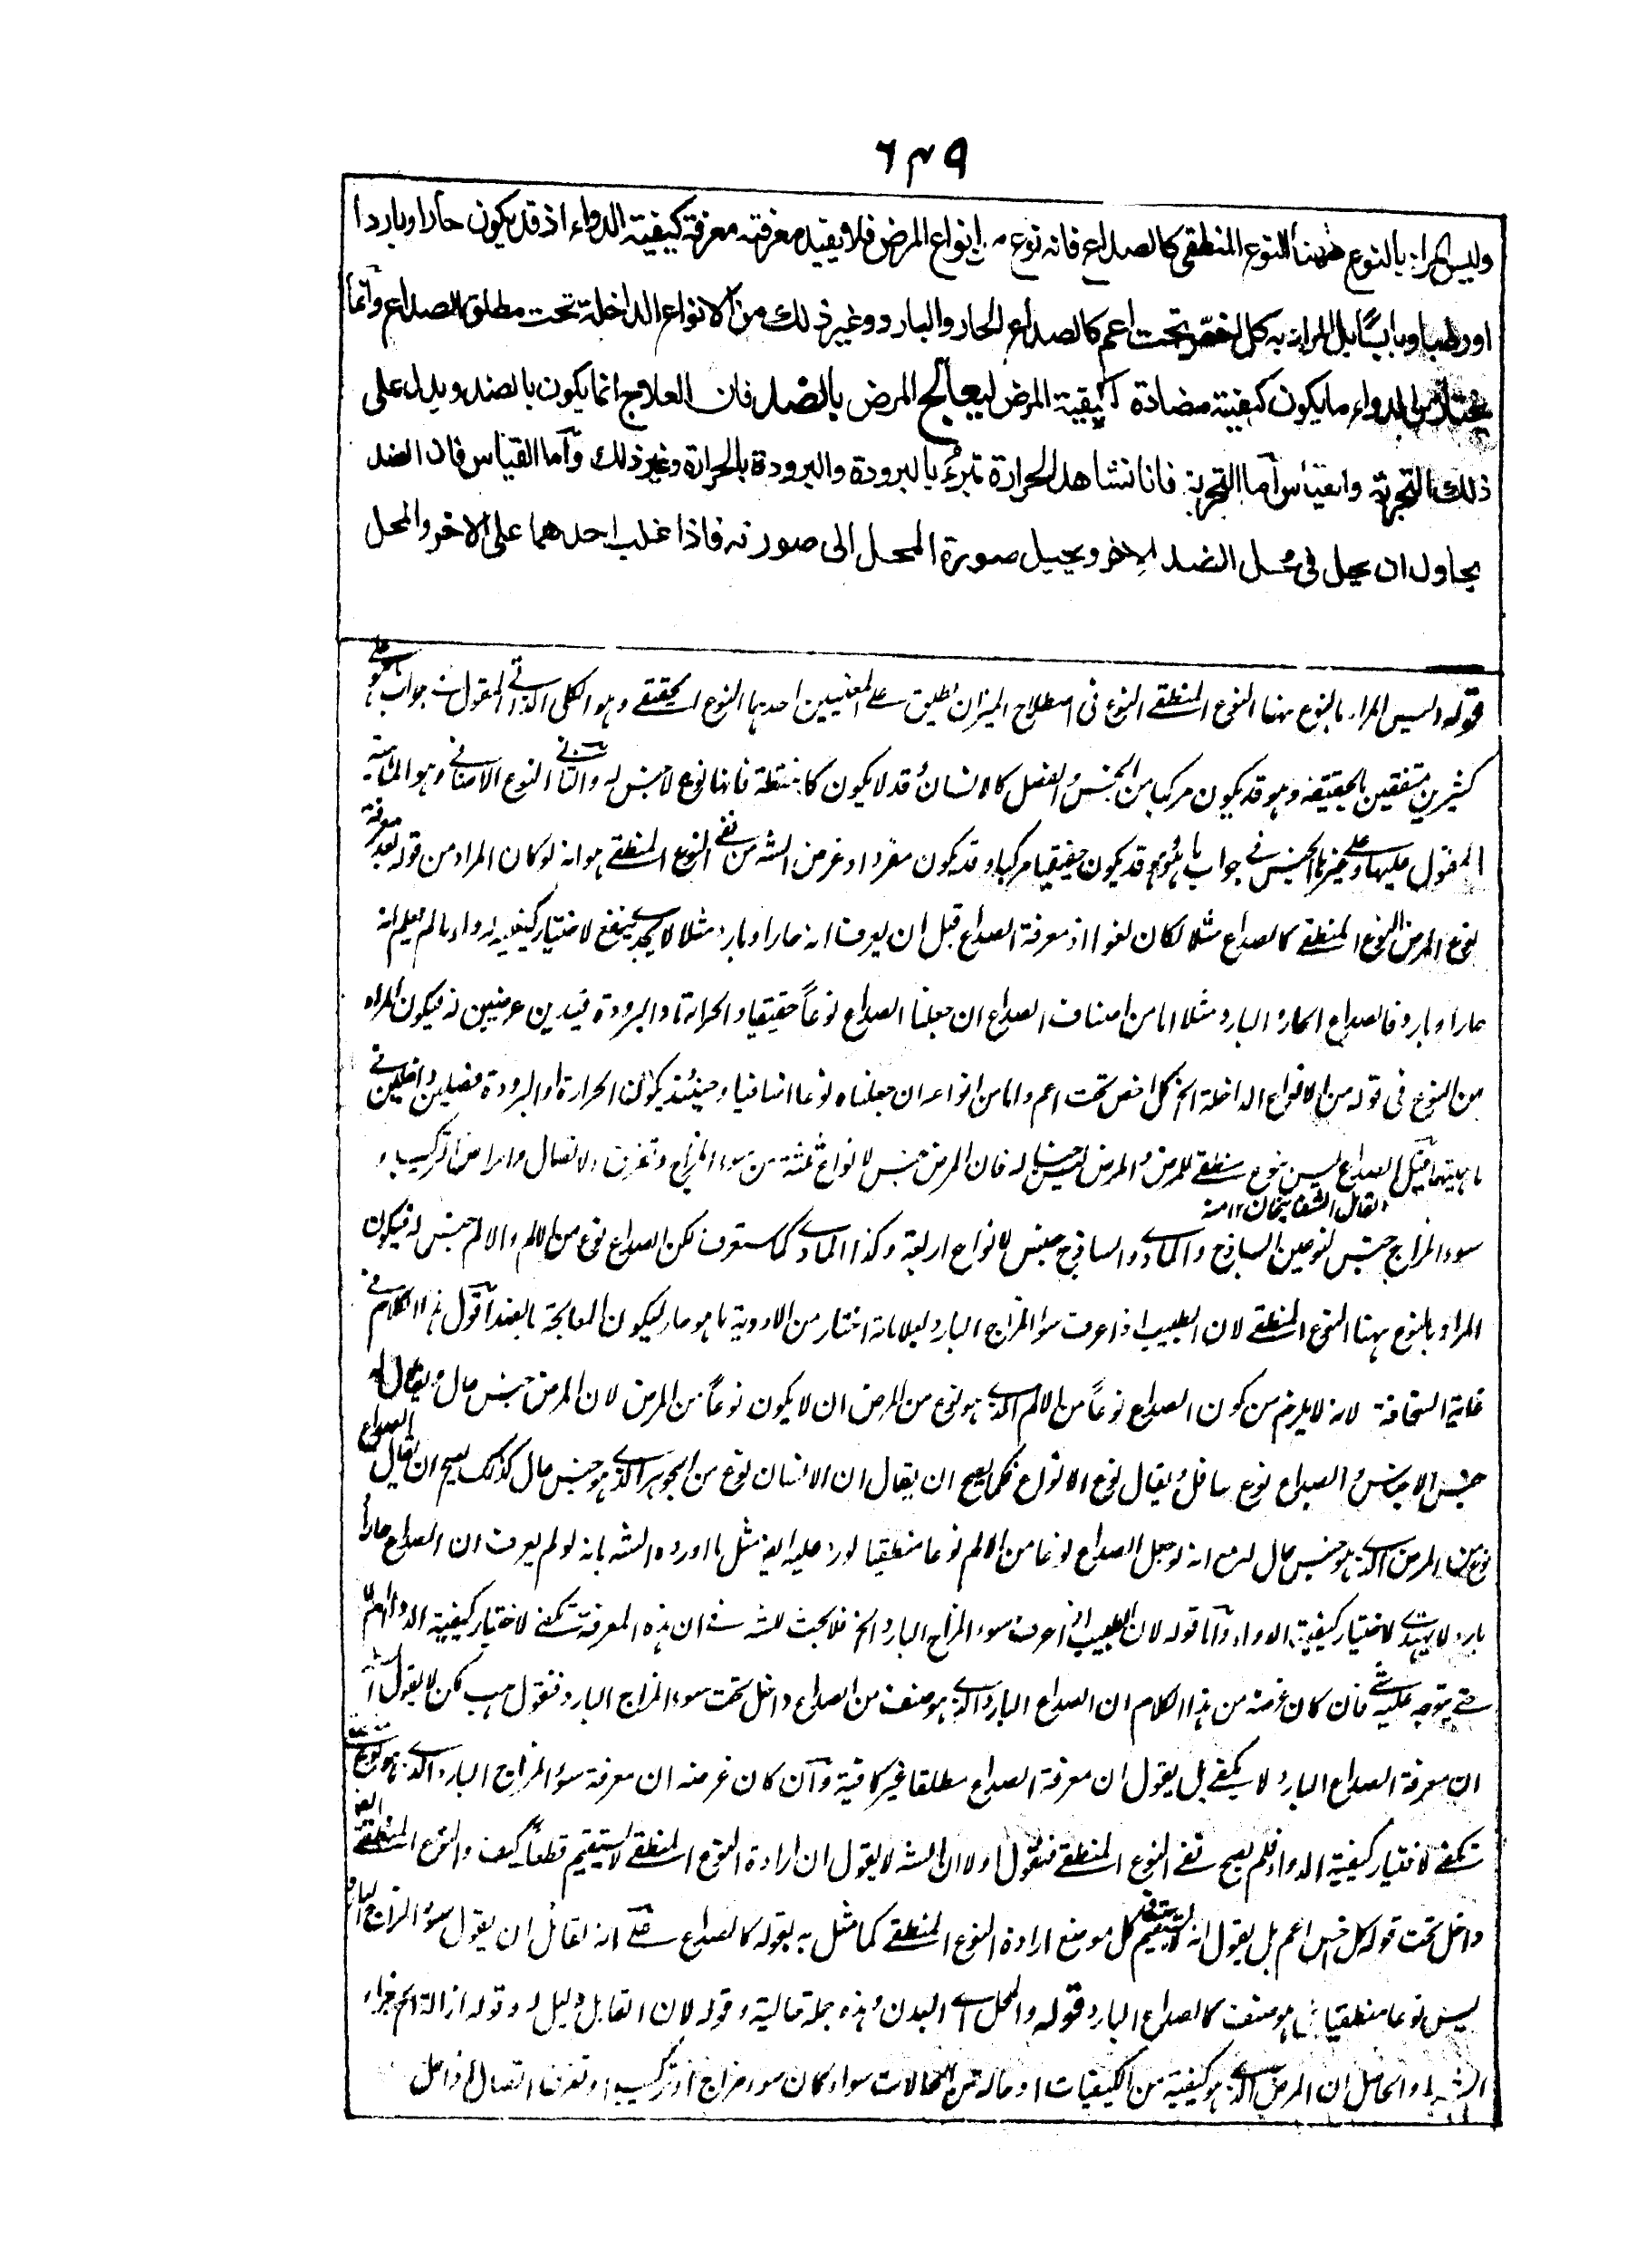 ٦٣٩
وليس المراد بالنوع ههنا النوع المنطقى كالصداع فانه نوع من انواع المرض فلا يفيد معرفته معرفة كيفية الدواء اذ قد يكون حارا وباردا
او رطبا ويابسا بل المراد به كل اخص تحت اعم كالصداع الحار والبارد وغير ذلك من الانواع الداخلة تحت مطلق الصداع وانما
يختار من الدواء ما يكون كيفيته مضادة لكيفية المرض ليعالج المرض بالضد فان العلاج انما يكون بالضد ويدل على
ذلك التجربة والقياس اما التجربة فانا نشاهد الحرارة تبرئ بالبرودة والبرودة بالحرارة وغير ذلك واما القياس فان الضد
يحاول ان يحل فى محل الضد الاخر ويحيل صورة المحل الى صورته فاذا غلب احدهما على الاخر والمحل
قوله وليس المراد بالنوع ههنا النوع المنطقے النوع فى اصطلاح الميزان يطلق علے المعنيين احدهما النوع الحقيقے وهو الكلى الذاتے المقول فے جواب ما هو علے
كثيرين متفقين بالحقيقة وهو قد يكون مركبا من الجنس والفصل كالانسان وقد لا يكون كالنقطة فانها نوع لا جنس له والثانے النوع الاضافے وهو الماهية
المقول عليها وعلے غيرها الجنس فے جواب ما هو وهو قد يكون حقيقيا مركبا وقد يكون مفردا وغرض الشه من نفے النوع المنطقے هو انه لو كان المراد من قوله بعد معرفة
نوع المرض النوع المنطقے كالصداع مثلا لكان لغوا اذ معرفة الصداع قبل ان يعرف انه حار او بارد مثلا لا يجدے ينفع لاختيار كيفية الدواء ما لم يعلم انه
حار او بارد فالصداع الحار والبارد مثلا اما من اصناف الصداع ان جعلنا الصداع نوعا حقيقيا والحرارة والبرودة قيدين عرضيين له فيكون المراد
من النوع فى قوله من الانواع الداخلة الخ كل اخص تحت اعم واما من انواعه ان جعلناه نوعا اضافيا وحينئذ يكون الحرارة والبرودة فصلين داخلين فے
ماهيتهما قيل الصداع ليس بنوع منطقے للمرض والمرض ليس جنسا له فان المرض جنس لانواع ثلثة من سوء المزاج وتفرق الاتصال وامراض التركيب و
القال الشفائيخان ١٢ منه
سوء المزاج جنس لنوعين الساذج والمادے والساذج جنس لانواع اربعة وكذا المادے كما ستعرف لكن الصداع نوع من الالم والالم جنس له فيكون
المراد بالنوع ههنا النوع المنطقے لان الطبيب اذا عرف سوء المزاج البارد بعلاماته اختار من الادوية ما هو حار ليكون المعالجة بالضد اقول هذا الكلام فے
غاية السخافة لانه لا يلزم من كون الصداع نوعا من الالم الذے هو نوع من المرض ان لا يكون نوعا من المرض لان المرض جنس عال ويقال له
جنس الاجناس والصداع نوع سافل ويقال نوع الانواع فكما يصح ان يقال ان الانسان نوع من الجوهر الذے هو جنس عال كذلك يصح ان يقال الصداع
نوع من المرض الذے هو جنس عال لمع انه لو جعل الصداع نوعا من الالم نوعا منطقيا لورد عليه ايض مثل ما اورده الشه بانه لو لم يعرف ان الصداع حار او
بارد لا يهتدے لاختيار كيفية الدواء واما قوله لان الطبيب اذا عرف سوء المزاج البارد الخ فلا بحث للشه فے ان هذه المعرفة تكفے لاختيار كيفية الدواء ام لا
حتے يتوجه عليه شے فان كان غرضه من هذا الكلام ان الصداع البارد الذے هو صنف من الصداع داخل تحت سوء المزاج البارد فنقول هب لكن لا يقول الشه
ان معرفة الصداع البارد لا يكفے بل يقول ان معرفة الصداع مطلقا غير كافية وان كان غرضه ان معرفة سوء المزاج البارد الذے هو نوع
تكفے لاختيار كيفية الدواء فلم يصح نفے النوع المنطقے فنقول اولا ان الشه لا يقول ان ارادة النوع المنطقے لا يستقيم قطعا كيف والنوع المنطقے ايض
داخل تحت قوله كل اخص اعم بل يقول انه لا يستقيم كل موضع ارادة النوع المنطقے كما مثل به بقوله كالصداع علے انه لقائل ان يقول سوء المزاج البارد
ليس نوعا منطقيا بل هو صنف كالصداع البارد قوله والمحل اے البدن وهذه جملة حالية وقوله لان القابل دليل له وقوله ازالة الخ جزاء
الشرط والحاصل ان المرض الذے هو كيفية من الكيفيات او حالة من الحالات سواء كان سوء مزاج او تركيب او تفرق اتصال اذا حل